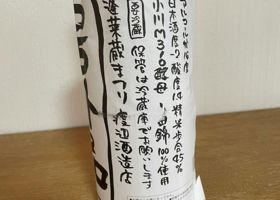 アルコール分16度
日本酒度-2 酸度1.4 精米歩合45%
小川M310酵母 山田錦100%使用
要冷蔵 保管は冷蔵庫でお願いします
蓬莱蔵まつり 渡辺酒造店